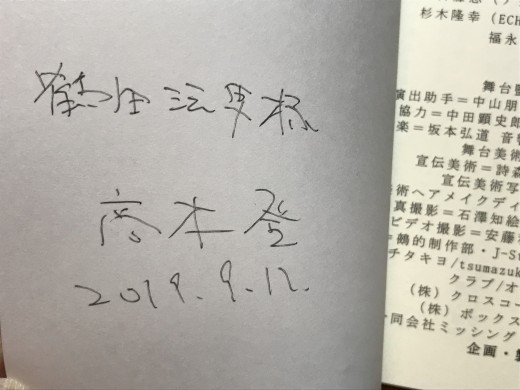 鶴田法男様
高木登
2019.9.12.
杉木隆幸(ECH
福永
舞台監
演出助手=中山朋
協力=中田顕史郎
楽=坂本弘道 音響
舞台美術
宣伝美術=詩森
宣伝美術写
美術ヘアメイクディ
真撮影=石澤知絵
ビデオ撮影=安藤
=鵺的制作部・J-St
チタキヨ/tsumazuk
クラブ/オ
(株)クロスコー
(株)ボックス
同会社ミッシング
企画・製